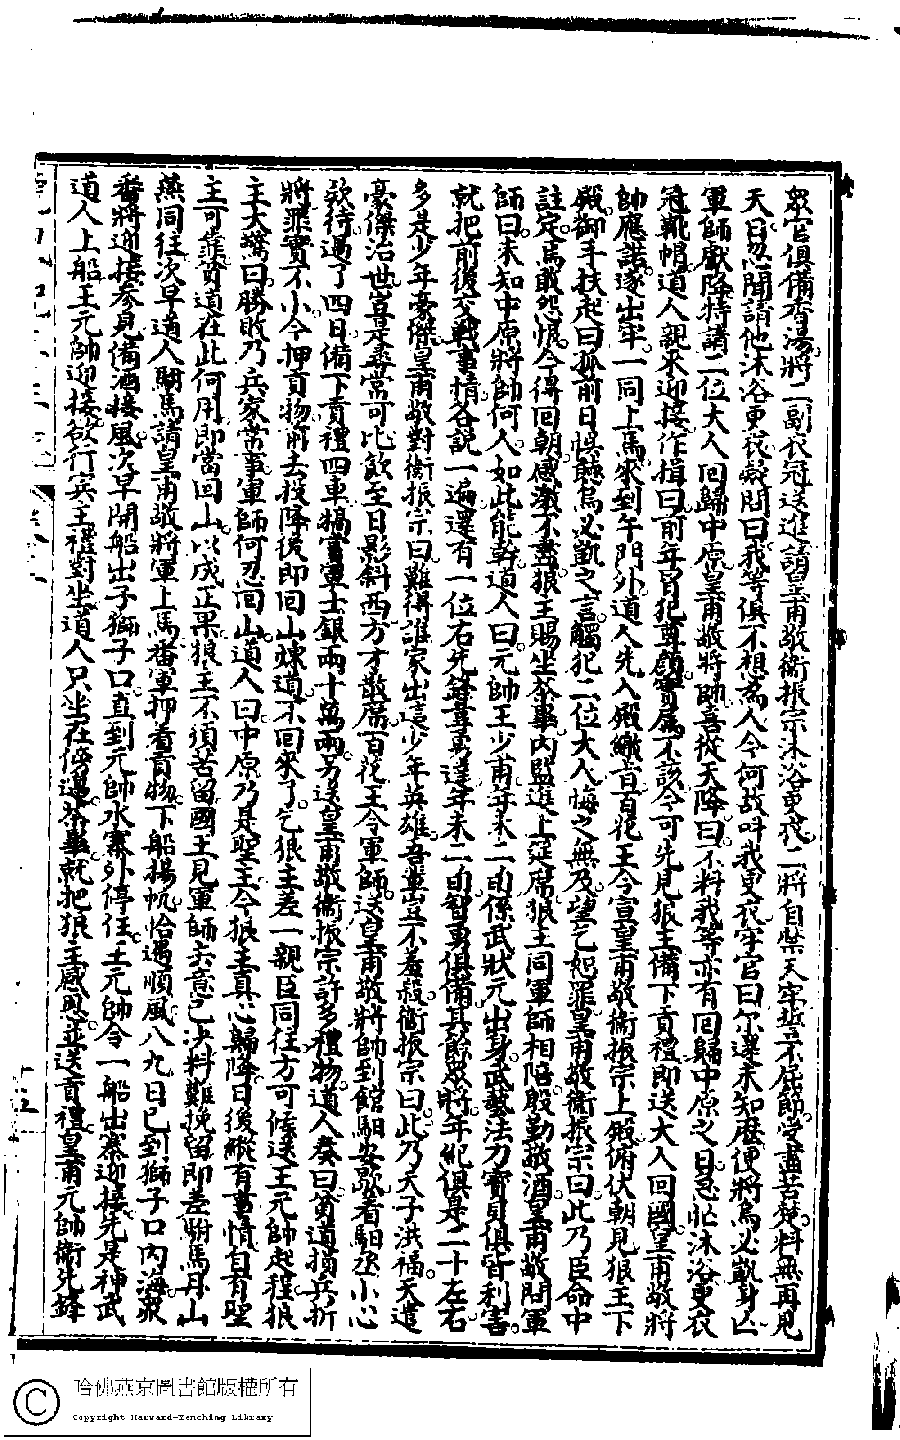 眾官俱備香湯將二副衣冠送進請皇甫敬衛振宗沐浴更衣二將自禁天牢誓不屈節受盡苦楚料無再見
天日忽聞請他沐浴更衣疑問曰我等俱不想為人今何故叫我更衣牢官曰尔還未知麼便將烏必凱身亡
軍師獻降特請二位大人回歸中原皇甫敬將帥喜從天降曰不料我等亦有回歸中原之日忍忙沐浴更衣
冠靴帽道人親來迎接作揖曰前年冒犯尊顏實屬不該今可先見狼主備下貢禮即送大人回國皇甫敬將
帥應諾遂出牢一同上馬來到午門外道人先入殿繳旨百花王令宣皇甫敬衛振宗上殿俯伏朝見狼王下
殿御手扶起曰孤前日悞聽烏必凱之言觸犯二位大人悔之無及望乞恕罪皇甫敬衛振宗曰此乃臣命中
註定焉敢怨恨今得回朝感激不盡狼王賜坐茶畢內監進上筵席狼王同軍師相陪殷勤敬酒皇甫敬問軍
師曰未知中原將帥何人如此能幹道人曰元帥王少甫年未二旬係武狀元出身武藝法力寶貝俱皆利害
就把前後交戰事情各說一遍還有一位右先鋒韋勇達年未二旬智勇俱備其餘眾將年紀俱是二十左右
多是少年豪傑皇甫敬對衛振宗曰難得誰家出這少年英雄吾輩豈不羞殺衛振宗曰此乃天子洪福天遣
豪傑治世豈是尋常可比飲至日影斜西方才散席百花王令軍師送皇甫敬將帥到館驲安歇着驲丞小心
欵待過了四日備下貢禮四車犒賞軍士銀兩十萬兩另送皇甫敬衛振宗許多禮物道人奏曰貧道損兵折
將罪實不小今押貢物前去投降後即回山煉道不回來了乞狼主差一親臣同往方可候送王元帥起程狼
主大驚曰勝敗乃兵家常事軍師何忍回山道人曰中原乃是聖主今狼主真心歸降日後縱有事情自有聖
主可靠貧道在此何用即當回山以成正果狼王不須苦留國王見軍師去意已決料難挽留即差駙馬丹山
燕同往次早道人駙馬請皇甫敬將軍上馬番軍押着貢物下船揚帆恰遇順風八九日已到獅子口內海眾
番將迎接參見備酒接風次早開船出子獅口直到元帥水寨外停住王元帥令一船出寨迎接先是神武
道人上船王元帥迎接欲行賓主禮對坐道人只坐在傍邊茶畢就把狼主感恩並送貢禮皇甫元帥衛先鋒
哈佛燕京圖書館版權所有
Copyright Harvard-Yenching Library